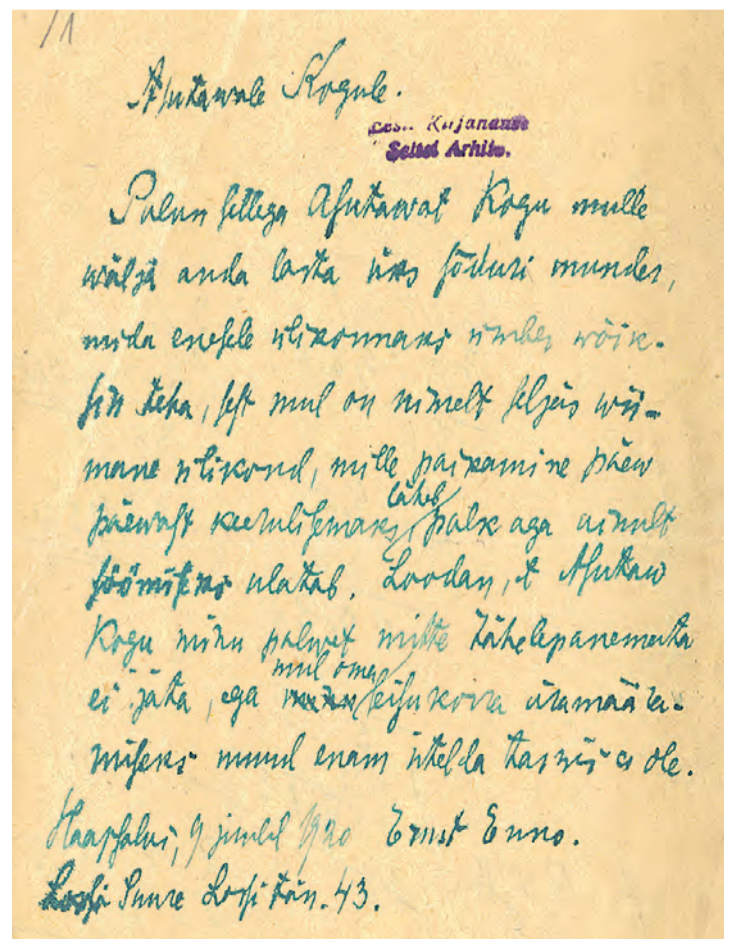 /1
Asutawale Kogule.
Eesti Kirjanduse
Seltsi Arhiiv.
Palun sellega Asutawat Kogu mulle
wälja anda lasta üks sõduri munder,
mida enesele ülikonnaks ümber wõik-
sin teha, sest mul on nimelt seljas wii-
mane ülikond, mille paikamine päew
päewast keerulisemaks läheb, palk aga ainult
söömiseks ulatab. Loodan, et Asutaw
Kogu minu palwet mitte tähelepanemata
ei jäta, ega mul oma seisukorra äramäära-
miseks muud enam ütelda tarvis ei ole.
Haapsalus, 9 juulil 1920 Ernst Enno.
Suure Lossi tän. 43.